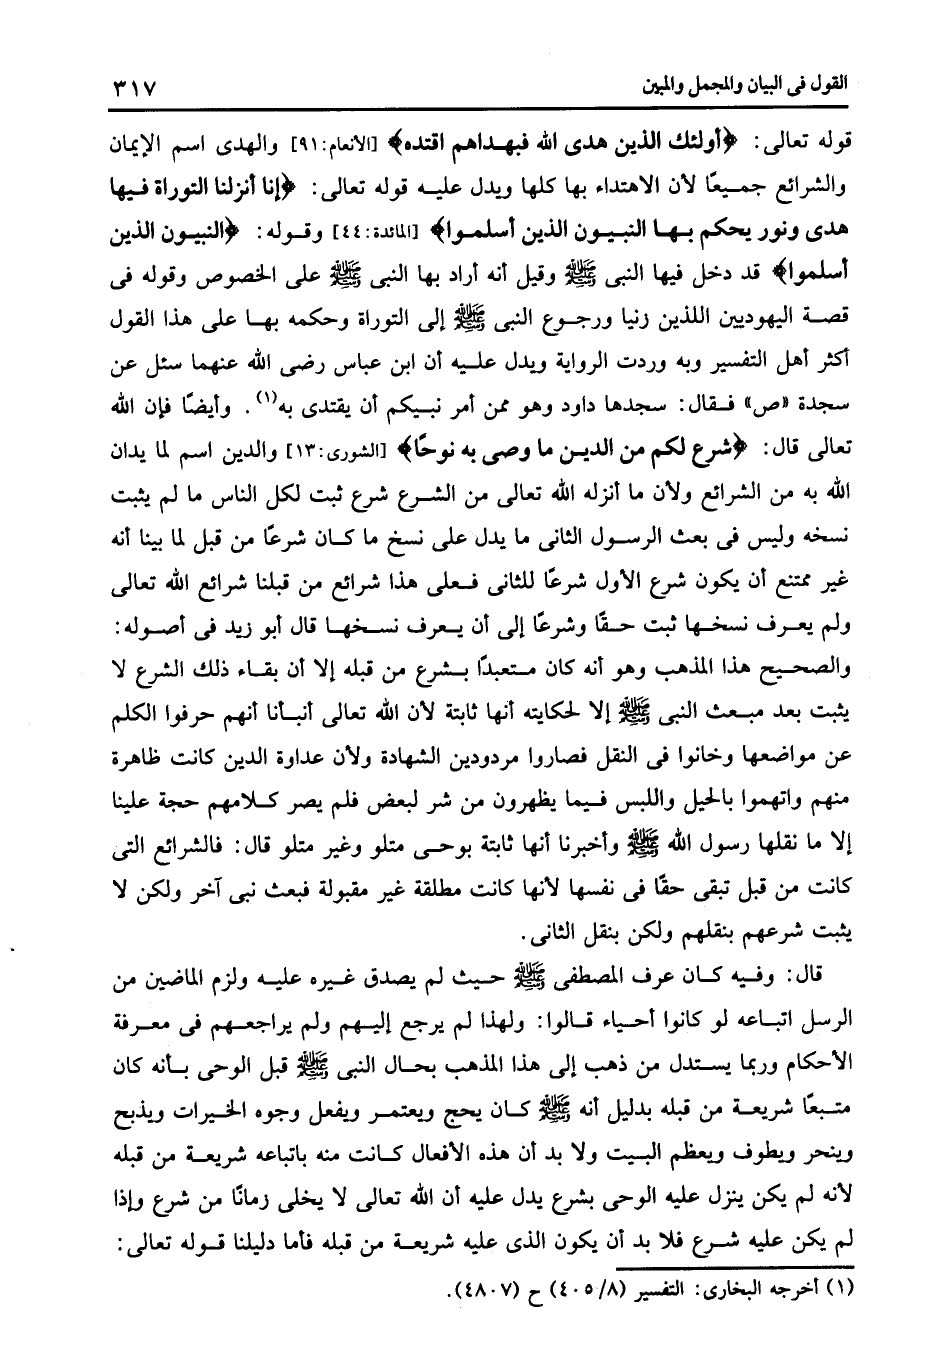 القول فى البيان والمجمل والمبين
٣١٧
قوله تعالى: ﴿أولئك الذين هدى الله فبهداهم اقتده﴾ [الأنعام:٩١] والهدى اسم الإيمان
والشرائع جميعًا لأن الاهتداء بها كلها ويدل عليه قوله تعالى: ﴿إنا أنزلنا التوراة فيها
هدى ونور يحكم بها النبيون الذين أسلموا﴾ [المائدة:٤٤] وقوله: ﴿النبيون الذين
أسلموا﴾ قد دخل فيها النبى ﷺ وقيل أنه أراد بها النبى ﷺ على الخصوص وقوله فى
قصة اليهوديين اللذين زنيا ورجوع النبى ﷺ إلى التوراة وحكمه بها على هذا القول
أكثر أهل التفسير وبه وردت الرواية ويدل عليه أن ابن عباس رضى الله عنهما سئل عن
سجدة «ص» فقال: سجدها داود وهو ممن أمر نبيكم أن يقتدى به(١). وأيضًا فإن الله
تعالى قال: ﴿شرع لكم من الدين ما وصى به نوحًا﴾ [الشورى:١٣] والدين اسم لما يدان
الله به من الشرائع ولأن ما أنزله الله تعالى من الشرع شرع ثبت لكل الناس ما لم يثبت
نسخه وليس فى بعث الرسول الثانى ما يدل على نسخ ما كان شرعًا من قبل لما بينا أنه
غير ممتنع أن يكون شرع الأول شرعًا للثانى فعلى هذا شرائع من قبلنا شرائع الله تعالى
ولم يعرف نسخها ثبت حقًا وشرعًا إلى أن يعرف نسخها قال أبو زيد فى أصوله:
والصحيح هذا المذهب وهو أنه كان متعبدًا بشرع من قبله إلا أن بقاء ذلك الشرع لا
يثبت بعد مبعث النبى ﷺ إلا لحكايته أنها ثابتة لأن الله تعالى أنبأنا أنهم حرفوا الكلم
عن مواضعها وخانوا فى النقل فصاروا مردودين الشهادة ولأن عداوة الدين كانت ظاهرة
منهم واتهموا بالحيل واللبس فيما يظهرون من شر لبعض فلم يصر كلامهم حجة علينا
إلا ما نقلها رسول الله ﷺ وأخبرنا أنها ثابتة بوحى متلو وغير متلو قال: فالشرائع التى
كانت من قبل تبقى حقًا فى نفسها لأنها كانت مطلقة غير مقبولة فبعث نبى آخر ولكن لا
يثبت شرعهم بنقلهم ولكن بنقل الثانى.
قال: وفيه كان عرف المصطفى ﷺ حيث لم يصدق غيره عليه ولزم الماضين من
الرسل اتباعه لو كانوا أحياء قالوا: ولهذا لم يرجع إليهم ولم يراجعهم فى معرفة
الأحكام وربما يستدل من ذهب إلى هذا المذهب بحال النبى ﷺ قبل الوحى بأنه كان
متبعًا شريعة من قبله بدليل أنه ﷺ كان يحج ويعتمر ويفعل وجوه الخيرات ويذبح
وينحر ويطوف ويعظم البيت ولا بد أن هذه الأفعال كانت منه باتباعه شريعة من قبله
لأنه لم يكن ينزل عليه الوحى بشرع يدل عليه أن الله تعالى لا يخلى زمانًا من شرع وإذا
لم يكن عليه شرع فلا بد أن يكون الذى عليه شريعة من قبله فأما دليلنا قوله تعالى:
(١) أخرجه البخارى: التفسير (٤٠٥/٨) ح (٤٨٠٧).